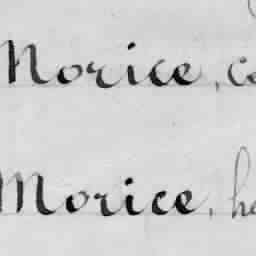 Morice, co
Morice, he